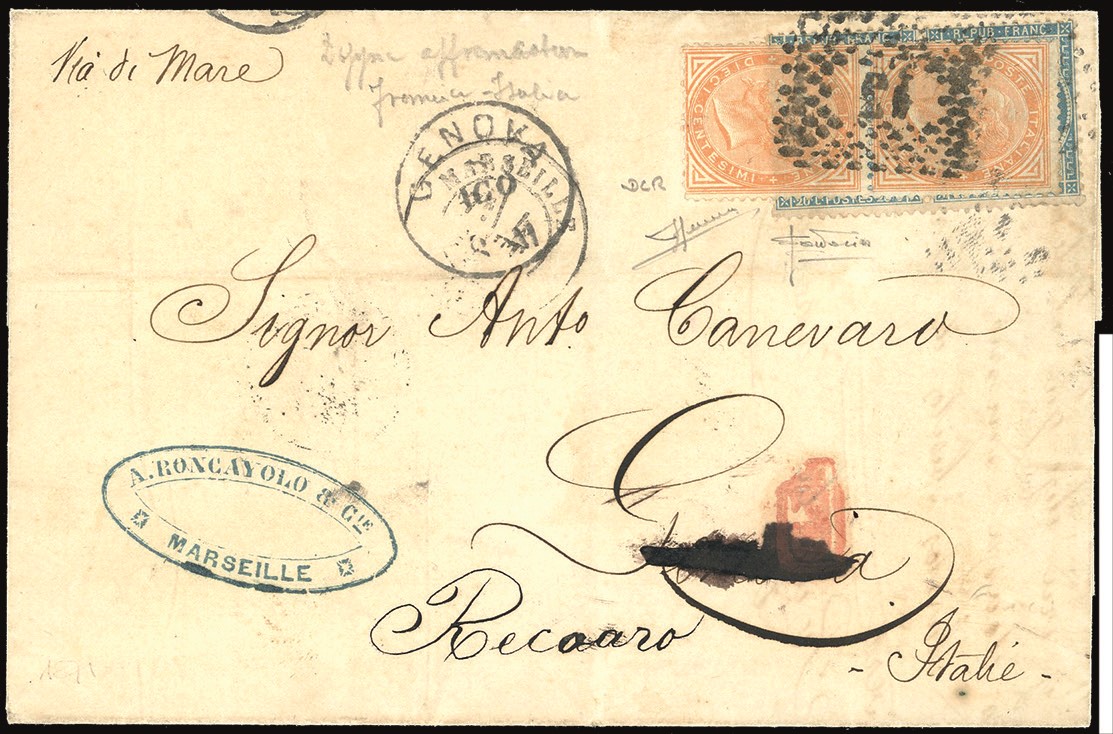 Via di Mare
Doppia affrancatura
Francia-Italia
GENOVA
MARSEILLE
AGO
DIECI CENTESIMI
POSTE ITALIANE
REPUB. FRANC.
20 C. POSTES 20 C.
DCR
Signor Anto Canevaro
A. RONCAYOLO & CIE
MARSEILLE
Recoaro
- Italie -